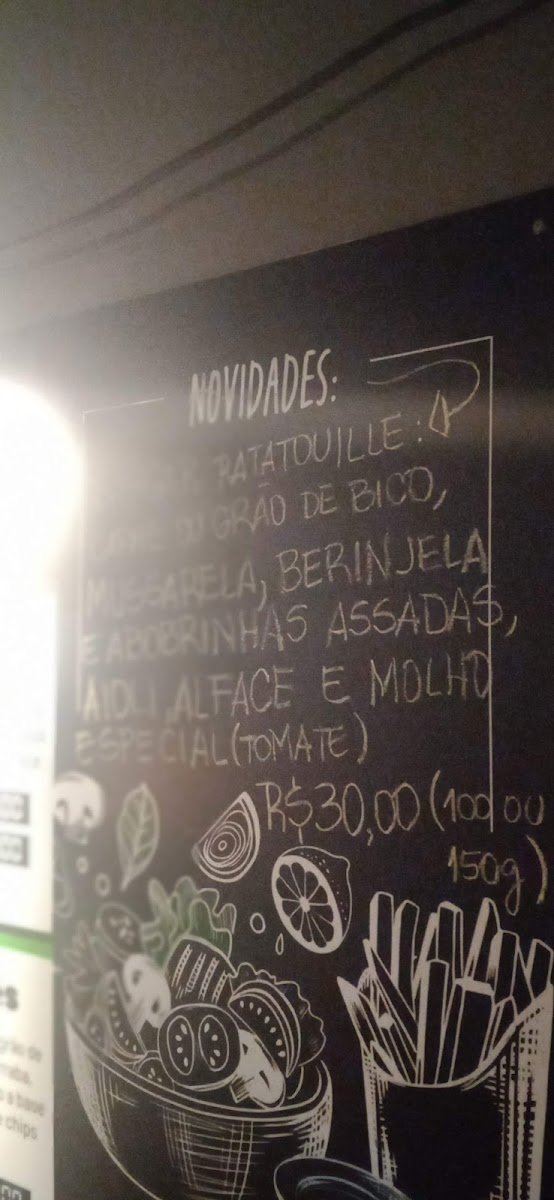 NOVIDADES:
RATATOUILLE:
CARNE OU GRÃO DE BICO,
MUSSARELA, BERINJELA
E ABOBRINHAS ASSADAS,
AIOLI, ALFACE E MOLHO
ESPECIAL (TOMATE)
R$30,00 (100 OU
150g)
es
grão de
a base
e chips